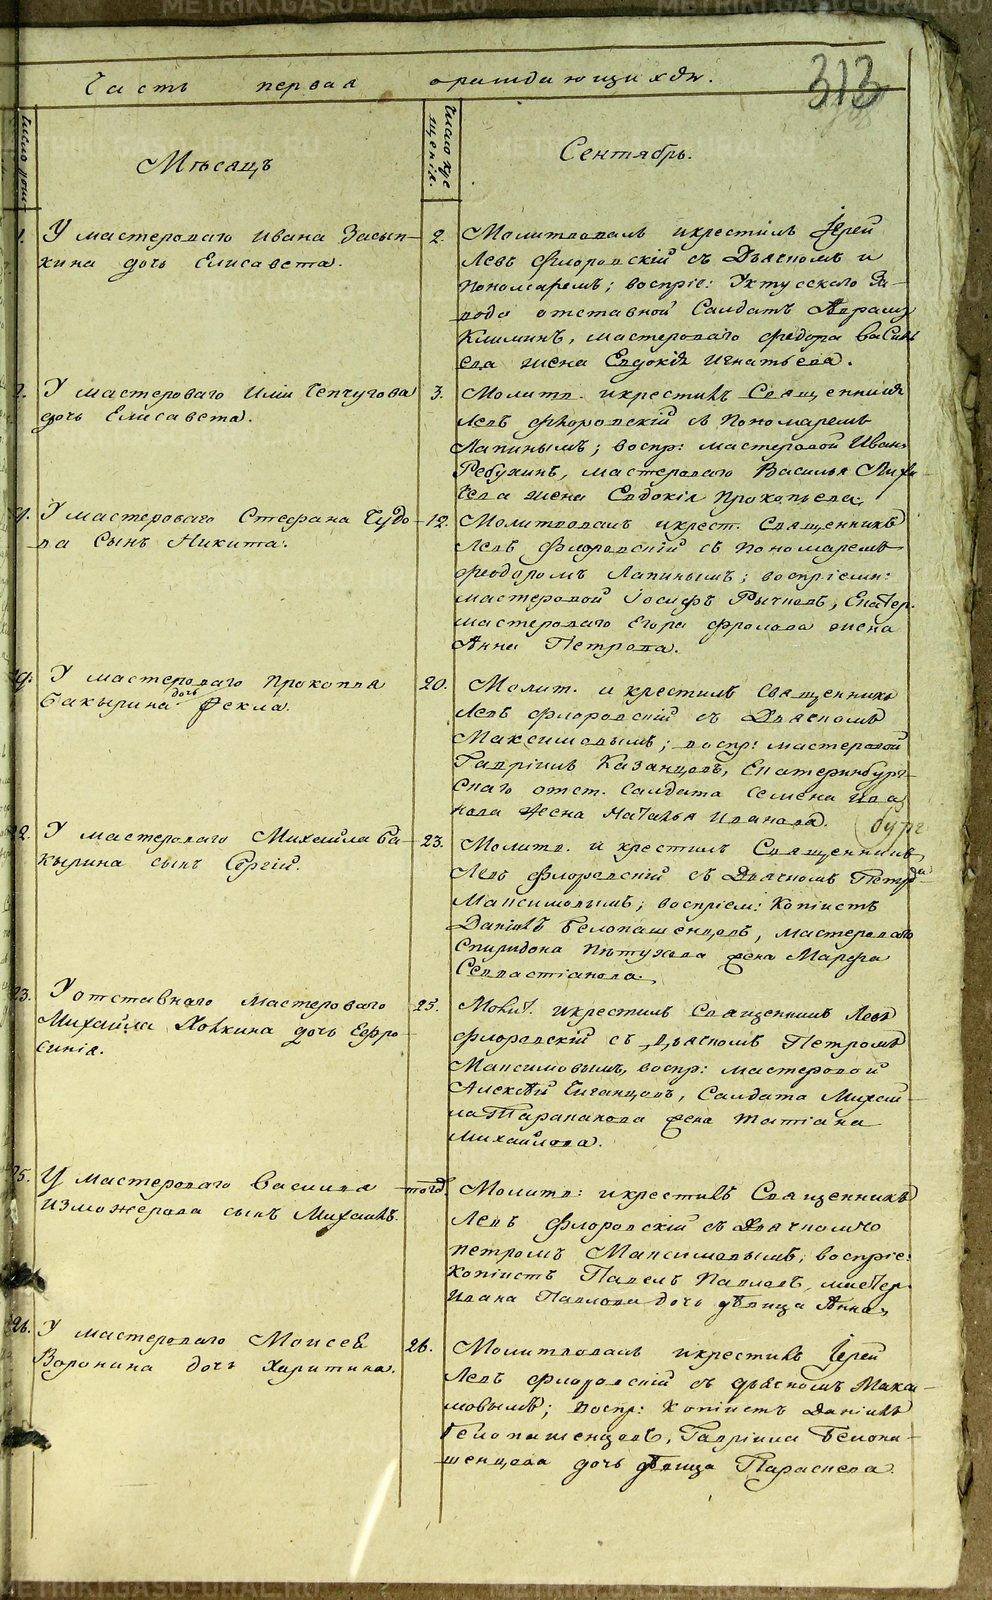 Часть первая ораждающихся.
313
Число рож
Мѣсяцъ
Число кре
щенія.
Сентябрь.
1. У мастероваго Ивана Засып-
кина дочь Елисавета.
2. Молитвовалъ и крестилъ Іерей
Левъ Флоровскій съ Дьячкомъ и
Пономаремъ; воспріе: Уктусскаго За-
вода отставной Салдатъ
Климинъ, мастероваго Федора Василь
ева жена Евдокія Игнатьева.
2. У мастероваго Іпчугова
дочь Елисавета.
3. Молитв. и крестилъ Священникъ
Левъ Флоровскій съ Пономаремъ
Лапинымъ; воспр: мастеровой Иванъ
Ребухинъ, мастероваго Василья
жена Евдокія Прокопьева.
9. У мастероваго Стефана Чудо-
ва сынъ Никита.
12. Молитвовалъ и крест. Священникъ
Левъ Флоровскій съ пономаремъ
Феодоромъ Лапинымъ; воспріемн:
мастеровой Іосифъ Рычковъ, Екатер.
мастероваго Егора Фролова жена
Анна Петрова.
19. У мастероваго Прокопья
Бакырина дочь Фекла.
20. Молит. и крестилъ Священникъ
Левъ Флоровскій съ Дьячкомъ
Максимовымъ; воспр: мастеровой
Гавріилъ Казанцовъ, Екатеринбург-
скаго отст. Салдата Семена Ива
нова жена Наталья Иванова.
(бург
22. У мастероваго Михайла Ба-
кырина сынъ Сергій.
23. Молитв. и крестилъ Священникъ
Левъ Флоровскій съ Дьячкомъ Петро
Максимовымъ; воспріем: Копіистъ
Даніилъ Белопашенцовъ, мастероваго
Спиридона Пѣтухова жена Марфа
Севастіанова.
23. У отставнаго мастероваго
Михайла дочь Ефро-
синія.
25. Молит. и крестилъ Священникъ Левъ
Флоровскій съ Дьячкомъ Петромъ
Максимовымъ, воспр: мастеровой
Алексѣй Циганцовъ, Салдата Михай
ла Тараканова жена Татіана
Михайлова.
25. У мастероваго Василья
Изможерова сынъ Михаилъ.
тогож
Молитв: и крестилъ Священникъ
Левъ Флоровскій съ Дьячкомъ
Петромъ Максимовымъ, воспріе:
Копіистъ Павелъ Павловъ, мастер.
Ивана Павлова дочь дѣвица Анна,
26. У мастероваго Моисея
Воронина дочь Харитина.
26. Молитвовалъ и крестилъ Іерей
Левъ Флоровскій съ дьячкомъ Макси-
мовымъ; воспр: Копіистъ Даніилъ
Белопашенцовъ, Гавріила Белопа-
шенцова дочь дѣвица Параскева.
METRIKI.GASO-URAL.RU